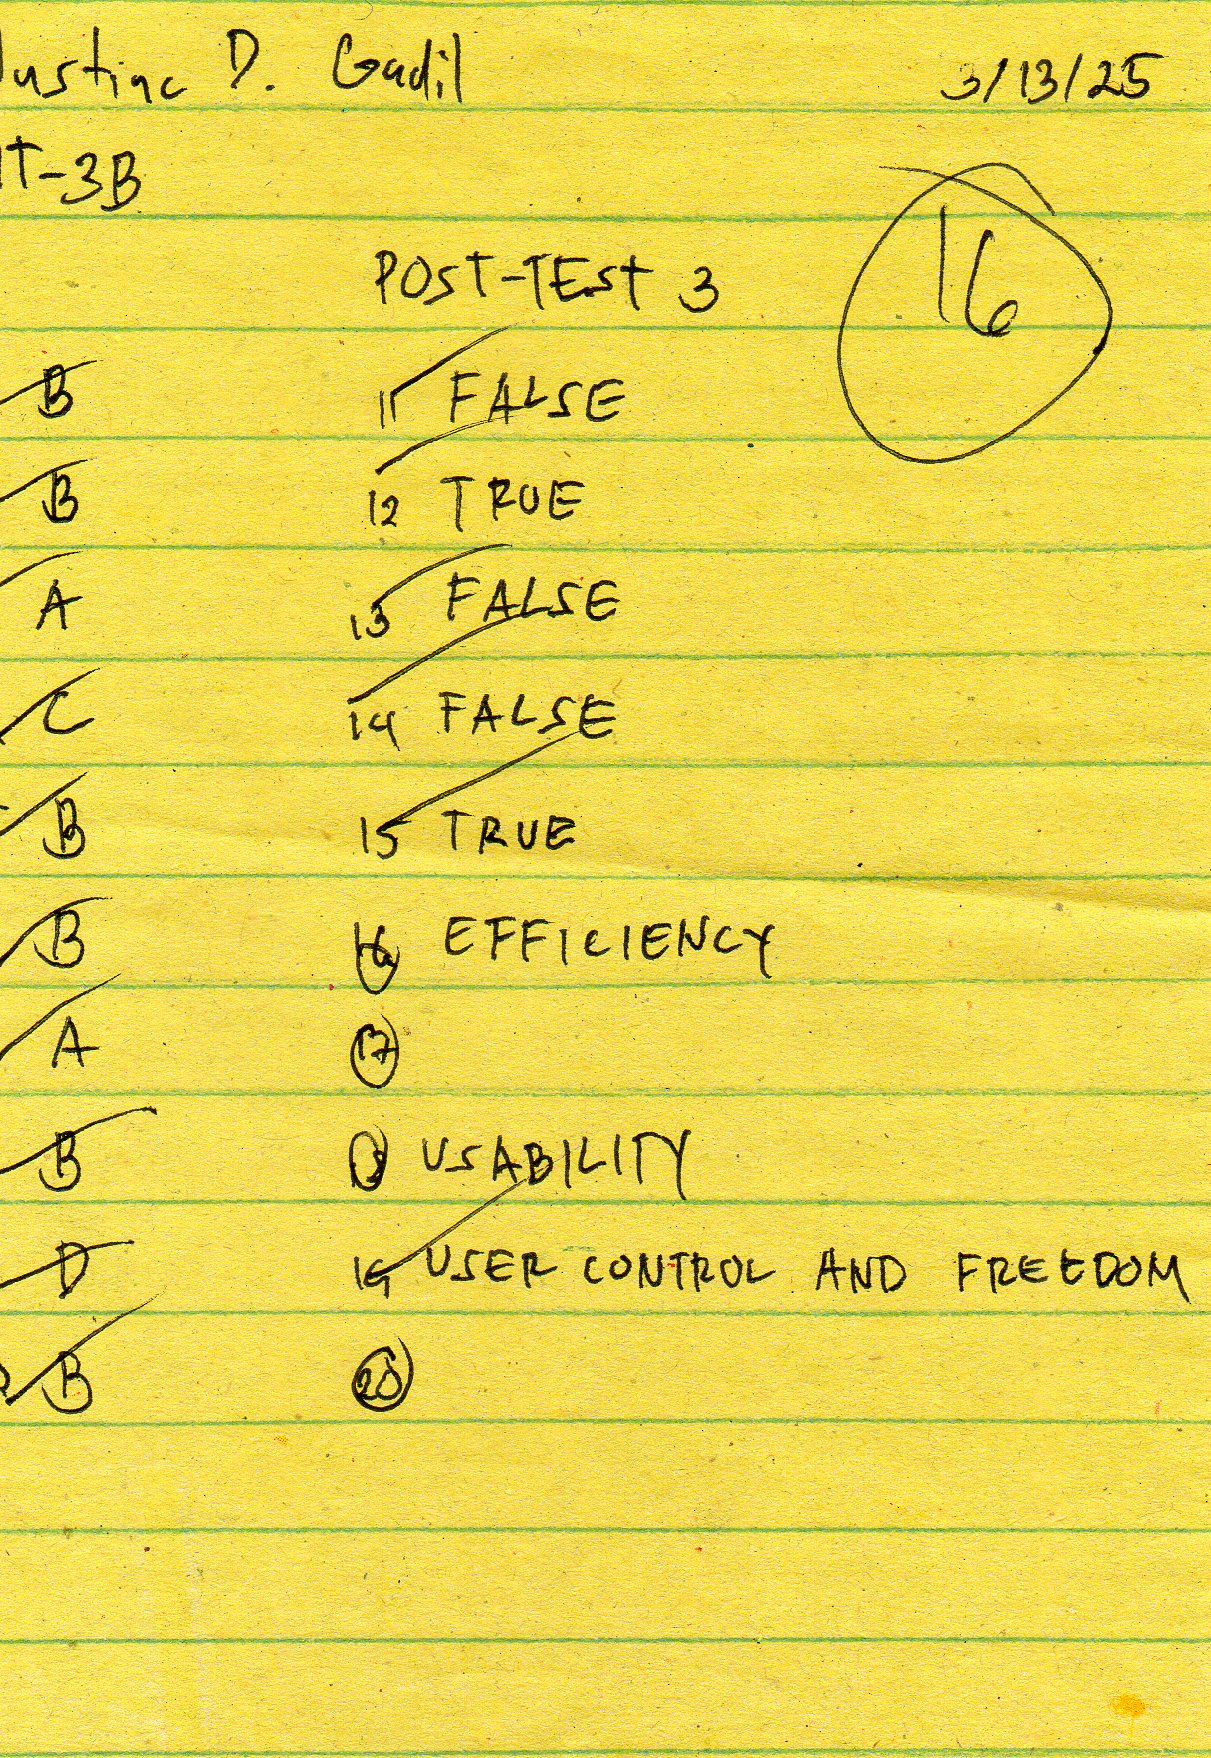 Justine D. Gadil 3/13/25
IT-3B
16
POST-TEST 3
B 11 FALSE
B 12 TRUE
A 13 FALSE
C 14 FALSE
B 15 TRUE
B 16 EFFICIENCY
A 17
B 18 USABILITY
D 19 USER CONTROL AND FREEDOM
B 20